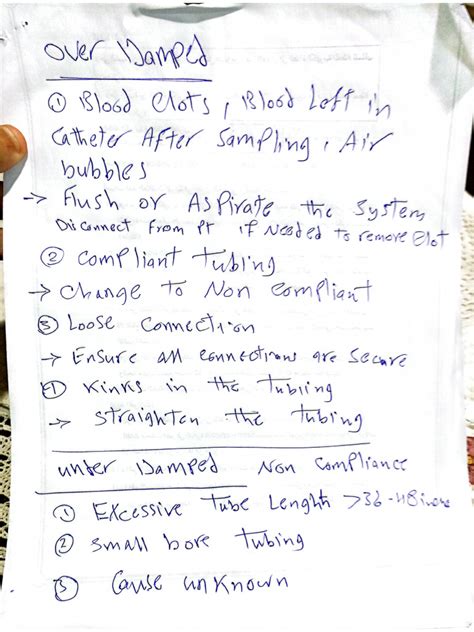 over Damped
① Blood Clots, Blood Left in
Catheter After Sampling, Air
bubbles
→ Flush or Aspirate the System
Disconnect from Pt if Needed to remove Clot
② compliant tubing
→ change to Non compliant
③ Loose connection
→ Ensure all connections are Secure
④ Kinks in the Tubiing
→ straighten the tubing
unter Damped Non Compliance
① Excessive Tube Lenghth >36-48
② small bore tubing
③ Cause unknown